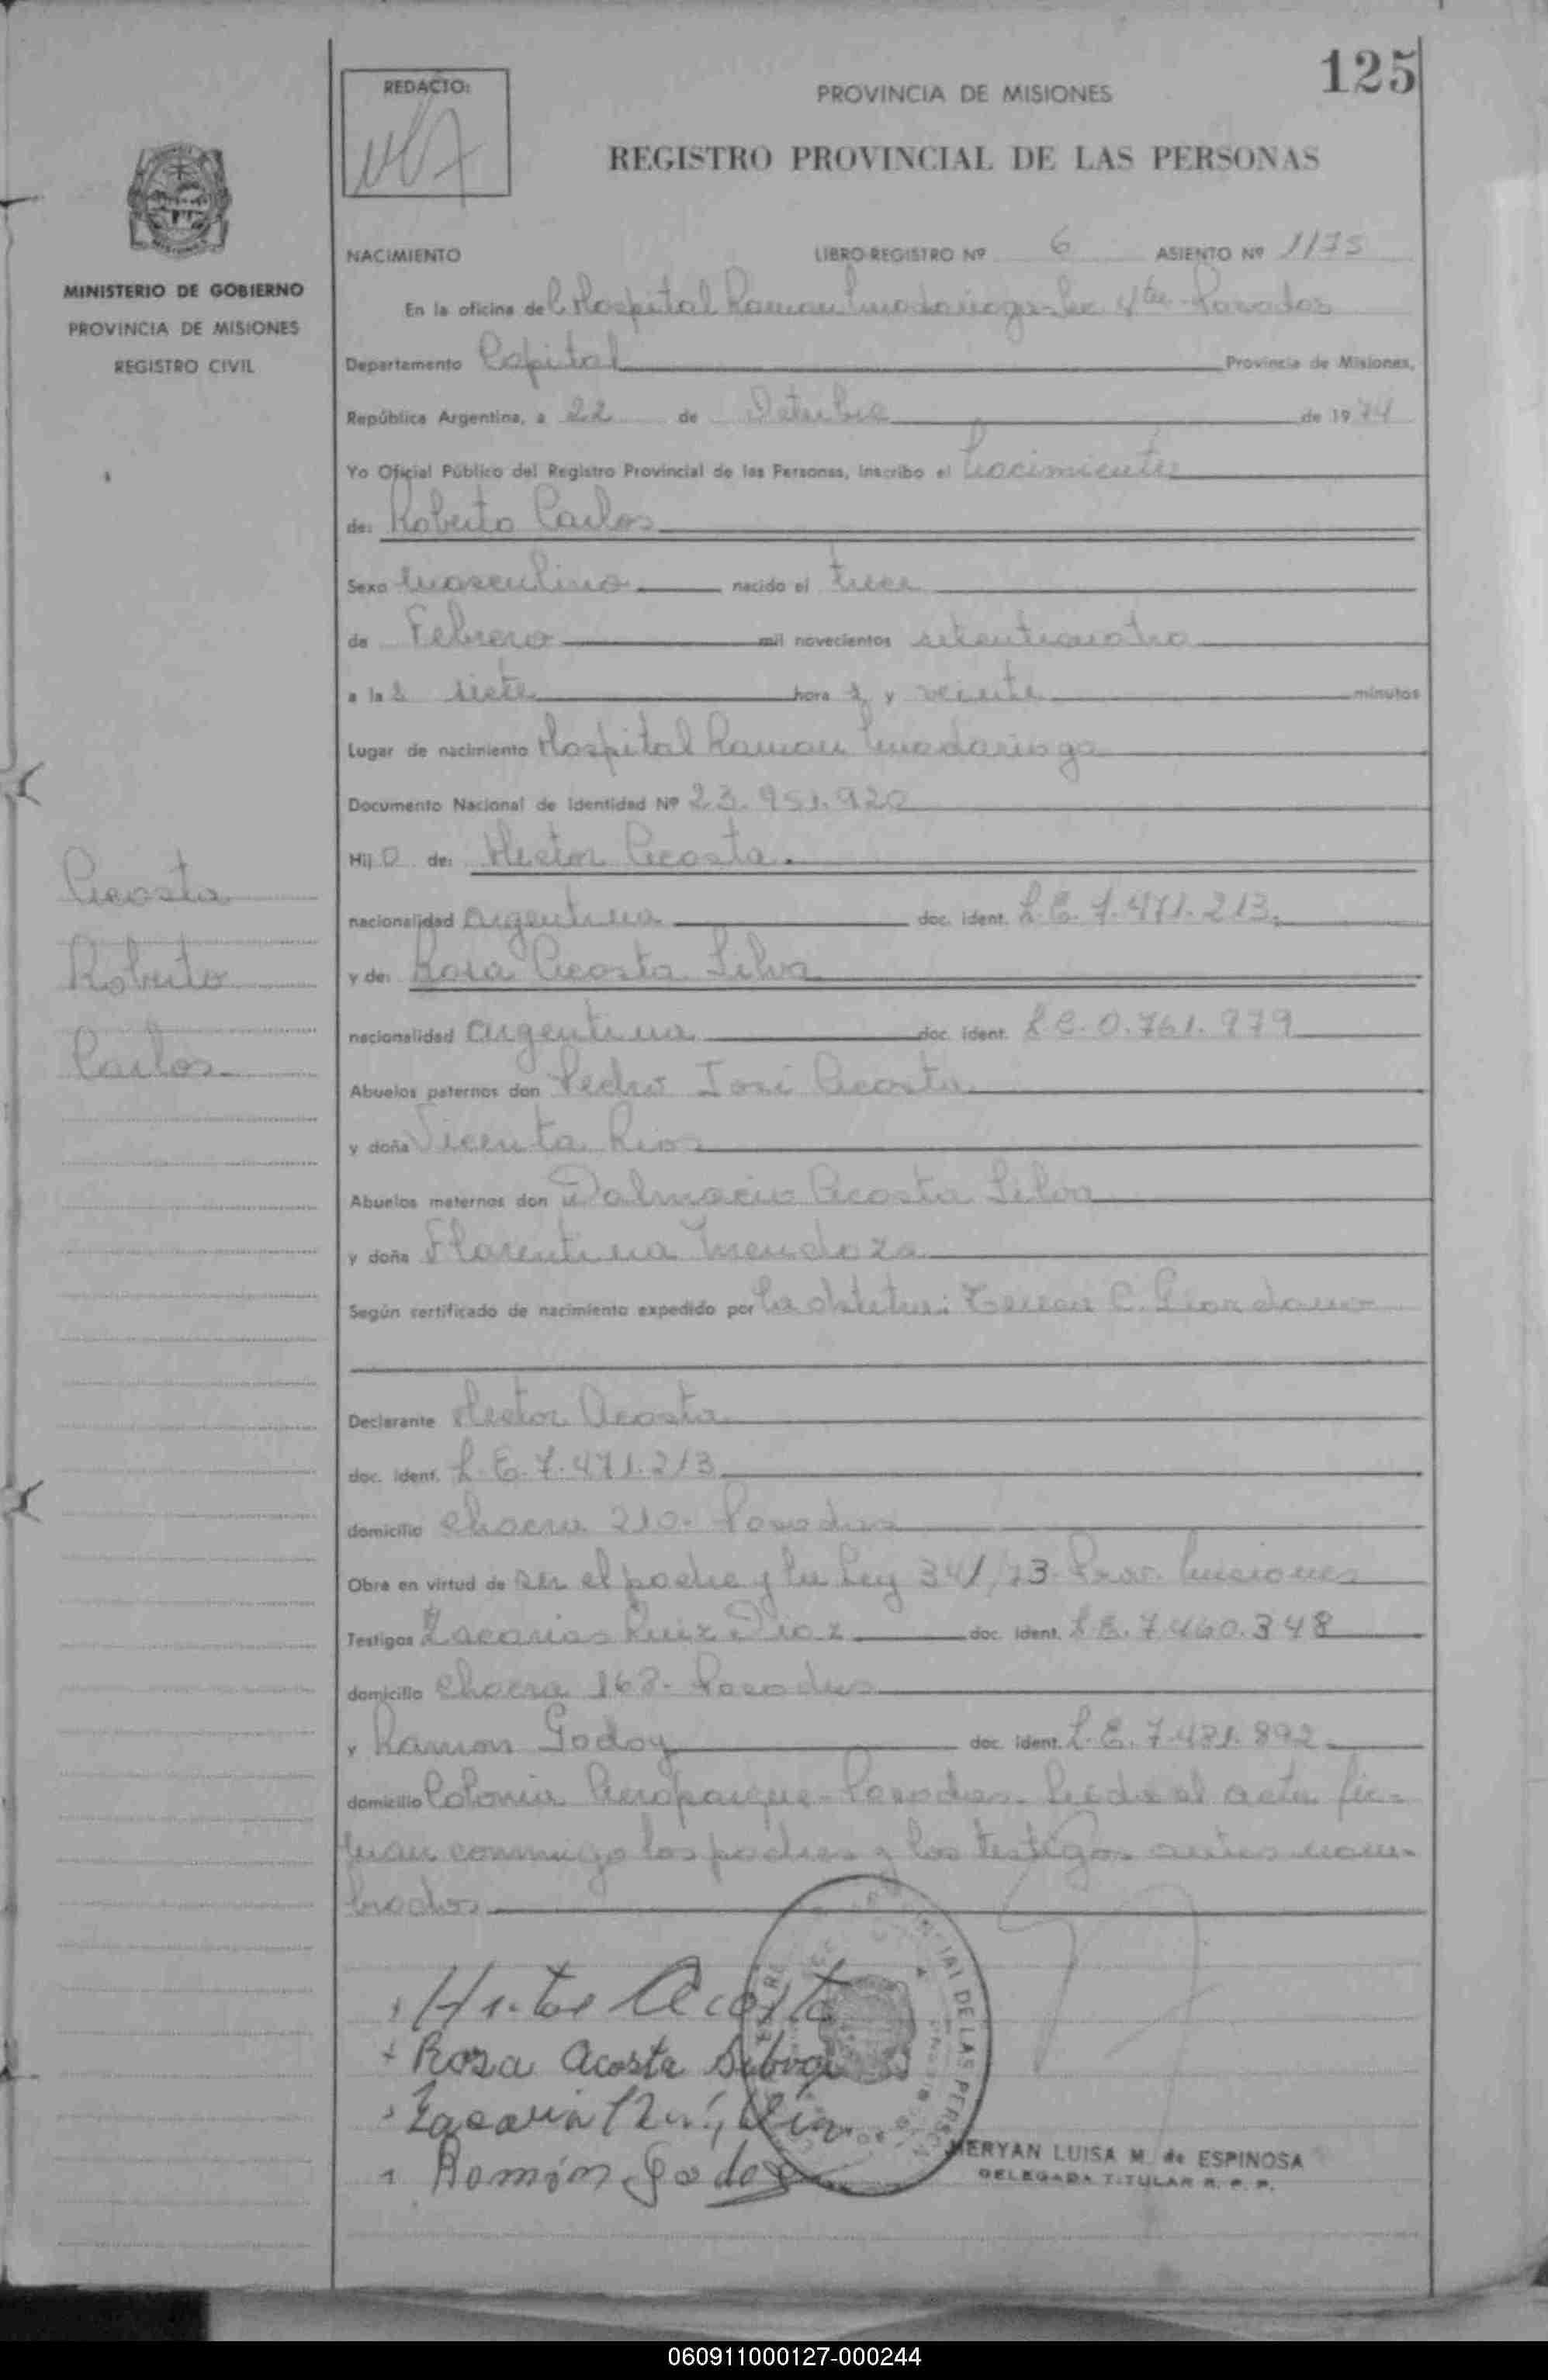 125
REDACTO:
PROVINCIA DE MISIONES
REGISTRO PROVINCIAL DE LAS PERSONAS
MINISTERIO DE GOBIERNO
PROVINCIA DE MISIONES
REGISTRO CIVIL
NACIMIENTO LIBRO-REGISTRO Nº 6 ASIENTO Nº 1175
En la oficina del Hospital Ramon Madariaga Posadas
Departamento Capital Provincia de Misiones,
República Argentina, a 22 de Octubre de 1974
Yo Oficial Público del Registro Provincial de las Personas, inscribo el nacimiento
de: Roberto Carlos
Sexo masculino nacido el trece
de Febrero mil novecientos setenticuatro
a las siete horas y veinte minutos
Lugar de nacimiento Hospital Ramon Madariaga
Documento Nacional de Identidad Nº 23.951.920
Hijo de: Hector Acosta
nacionalidad argentina doc. ident. L.E. 7.471.213
y de: Rosa Acosta Silva
nacionalidad argentina doc. ident. L.C. 0.761.979
Abuelos paternos don Pedro José Acosta
y doña Vicenta Rios
Abuelos maternos don Dalmacio Acosta Silva
y doña Florentina Mendoza
Según certificado de nacimiento expedido por la obstetri: C. Giordano
Declarante Hector Acosta
doc. ident. L.E. 7.471.213
domicilio chacra 210- Posadas
Obra en virtud de ser el padre y la Ley 341/73- Prov. Misiones
Testigos Zacarias Ruiz Diaz doc. ident. L.E. 7.460.348
domicilio chacra 168- Posadas
y Ramon Godoy doc. ident. L.E. 7.481.892
domicilio Colonia Aeroparque- Posadas. Leida el acta fir-
man conmigo los padres y los testigos antes nom-
brados
Acosta
Roberto
Carlos
Hector Acosta
+ Rosa Acosta Silva
Zacaria Ruiz Dia
Ramón Godoy
MERYAN LUISA M. de ESPINOSA
DELEGADA TITULAR R. P. P.
060911000127-000244